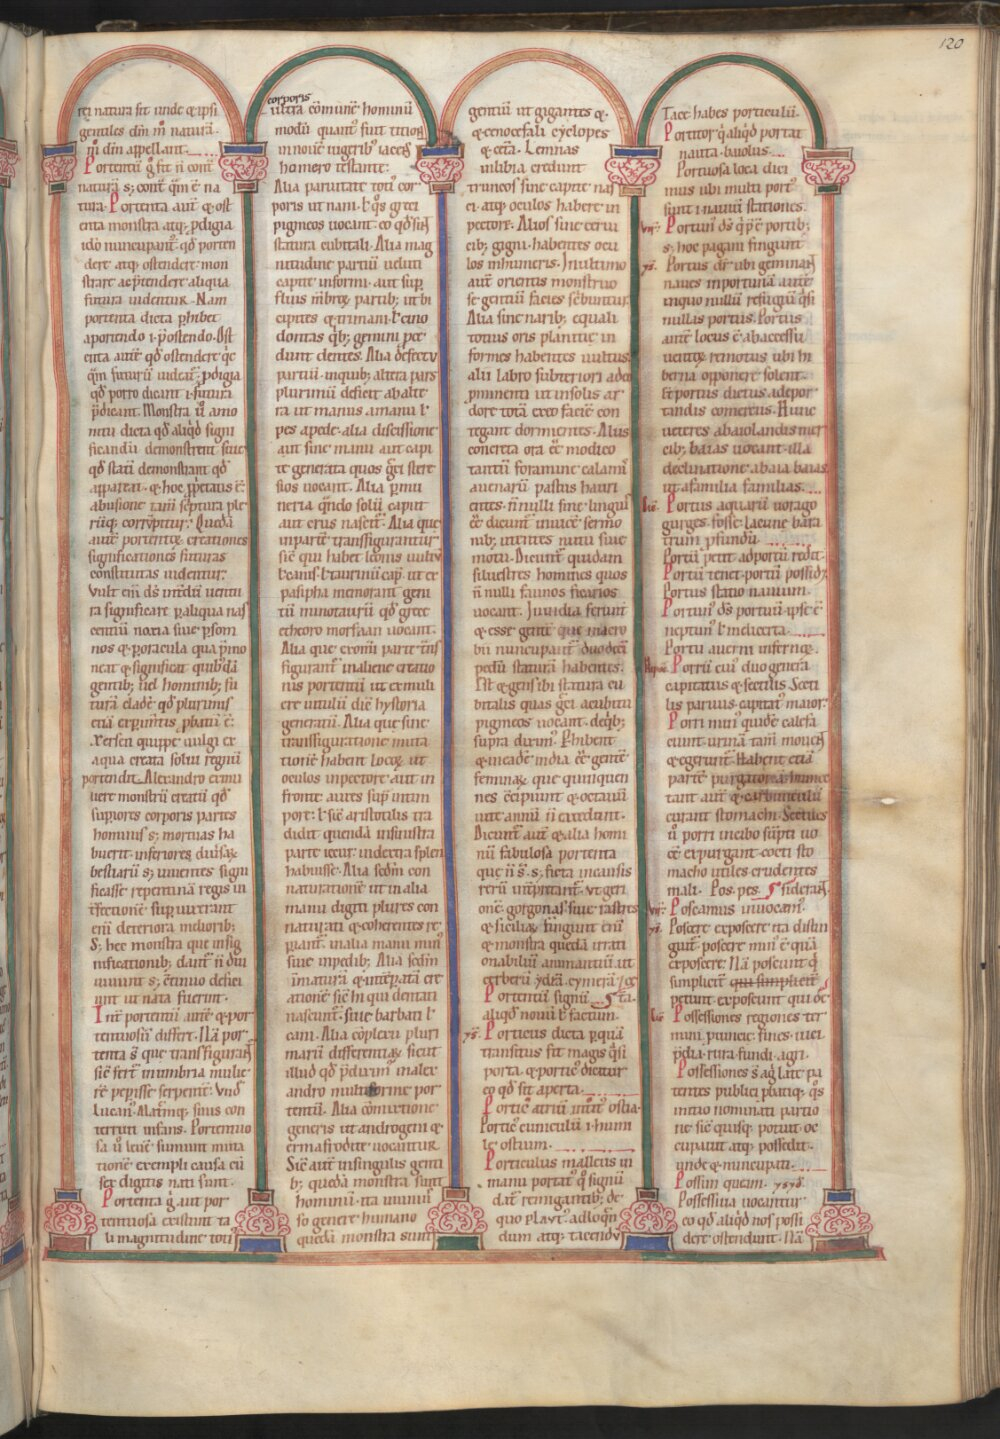 120
rei natura fit unde & ipsi
gentiles dm̄ m̄ naturā.
m̄ dm̄ appellant.
Portentū g̊ fit n̄ cont̄
naturā s; cont̄ qm̄ ē na
tura. Portenta aut̄ & ost
enta monstra atq; p̄digia
ido nuncupant̄. qd̄ porten
dere atq; ostendere. mon
strare ac p̄tendere aliqua
futura uidentur. Nam
portenta dicta p̄hibet
aporiendo .i. p̄ostendo. Ost
enta autē qd̄ ostendere q̄c
q̄m futurū uideat̄. p̄digia
qd̄ porro dicant .i. futura
p̄dicant. Monstra ū amo
nitu dicta qd̄ aliqd̄ signi
ficandū demonstrent siue
qd̄ statī demonstrant qd̄
appareat. & hoc p̄prietatis ē.
abusione tam̄ sc̄ptura ple
rūq; corrūpitur. Quedā
autē portentor̄ creationes
significationes futuras
constitutas uidentur.
Vult eni ds̄ int̄dū uentu
ra significare p̄aliqua nas
centiū noxia siue p̄som
nos & p̄oracula qua p̄mo
neat & significat quib;dā
gentib; uel hominib; fu
turā cladē. qd̄ plurimis
etiā exp̄imtis p̄batū ē.
Xersen quippe uulgi ex
aqua creata solui regnū
portendit. Alexandro exmu
liere monstrū creatū qd̄
supiores corporis partes
hominis s; mortuas ha
buerit. inferiores diūsar̄
bestiarū s; uiuentes signi
ficasse repentinā regis in
t̄fectionē. sup̄uixerant
eni deteriora meliorib;
S; hec monstra que insig
nificationib; dant̄ n̄ diu
uiuunt s; c̄tinuo defici
unt ut nata fuerint.
Int̄ portentū autē & por
tentuosū differt. Nā por
tenta s̄ que transfigurant̄
sic̄ fert̄ inumbria mulie
rē pep̄isse serpentē. Vnd̄
lucan̄. Matrēq; suus con
terruit infans. Portentuo
sa ū leuē sumunt muta
tionē exempli causa cū
sex digitis nati sunt.
Portenta g̊ aut por
tentuosa existunt ta
li magnitudine totī
corporis
ultra cōmunē hominū
modū quant̄ fuit tition
innouē iugerib; iacens
homero testante.
Alia paruitate toti cor
poris ut nani. l̄ q̄s greci
pigmeos uocant. eo qd̄ sint
statura cubitali. Alia mag
nitudine partiū ueluti
capite informi. aut sup̄
fluis m̄bror̄ partib; ut bi
cipites & trimani. l̄ cino
dontas q̄b; gemini p̄ce
dunt dentes. Alia d̄fectu
partiū. inquib; altera pars
plurimū deficit ab alte
ra ut manus amanu l̄
pes apede. alia discissione
aut sine manu aut capi
te generata quos greci stere
sios uocant. Alia p̄mu
neria q̄ndo solū caput
aut crus nascit̄. Alia que
inparte transfigurantur
sic̄ qui habet leonis uultū
l̄ canis. l̄ taurinū cap̄. ut ex
pasipha memorant geni
tū minotaurū qd̄ greci
etheoro morfaan uocant.
Alia que exomi parte t̄ns
figurant̄ inaliene creatio
nis portentū ut exmuli
ere uitulū dic̄ hystoria
generatū. Alia que sine
transfiguratione muta
tionē habent locor̄ ut
oculos inpectore aut in
fronte. aures sup̄ intim
pore. l̄ sic̄ aristotilis tra
didit quendā insinistra
parte iecur. indextra splen
habuisse. Alia sedm̄ con
naturationē ut in alia
manu digiti plures con
naturati & coherentes re
p̄iant̄. inalia manu min̄
siue inpedib; Alia sedm̄
īmaturā & int̄p̄ratā cre
ationē sic̄ hi qui dentati
nascunt̄. siue barbati l̄
cani. Alia cōplexu pluri
marū differentiar̄ sicut
illud qd̄ p̄dixim̄ inalex
andro multiforme por
tentū. Alia cōmixtione
generis ut androgeni &
ermafrodite uocantur
Sic̄ aut̄ insingulis genti
b; quedā monstra sunt
hominū. ita uniuer̄
so genere humano
quedā monstra sunt
gentiū ut gigantes &
& cenocefali cyclopes
& cet̄a. Lemnas
inlibia credunt
truncos sine capite nas
ci. atq; oculos habere in
pectore. Alios sine cerui
cib; gigni. habentes ocu
los inhumeris. Inultimo
autē orientis monstruo
se gentiū facies sc̄buntur.
Alia sine narib; equali
totius oris planitie in
formes habentes uultus.
alii labro subteriori adeo
p̄minenti ut insolis ar
dore totā exeo faciē con
tegant dormientes. Alius
concreta ora eē modico
tantū foramine calami
auenarū pastus hauri
entes. n̄ nulli sine lingua
eē dicunt̄ inuicē sermo
nib; utentes nutu siue
motu. Dicunt̄ quidam
siluestres homines quos
n̄ nulli faunos ficarios
uocant. Inindia ferunt
& esse gentē que macro
bii nuncupant̄ duodecī
pedū staturā habentes.
Est & gens ibi statura cu
bitalis quas greci acubitu
pigmeos uocant. deq̄b;
supra dixim̄. P̄hibent
& ineadē india eē gentē
feminar̄ que quinquen
nes c̄cipiunt & octauū
uite annū n̄ excedunt.
Dicunt̄ aut̄ & alia homi
nū fabulosa portenta
que n̄ s̄. s; ficta incausis
rerū int̄pretant̄. ut geri
onē. gorgonas. siue rastres
& sicilias fingunt eni
& monstra quedā irrati
onabiliū animantiū. ut
cerberū ydrā. cymerā
Portentū signū
aliqd̄ nouū l̄ factum.
Porticus dicta p̄quā
transitus sit magis q̄si
porta. & portic̄ dicitur
eo qd̄ sit aperta.
Portic̄ atriū intit̄ ostia.
Portic̄ cuniculū .i. humi
le ostium.
Porticulus malleus in
manu portat̄ q̄ signū
dat̄ remigantib; de
quo plaut̄. adloqn̄
dum atq; tacendū
Tace habes porticulū.
Portitor q̄ aliqd̄ portat
nauta. baiolus.
Portuosa loca dici
mus ubi multi port̄
sunt .i. nauiū stationes.
Portun̄ ds̄ q̄ p̄e portib;
s; hoc pagani fingunt
Portus dc̄ ubi geminant̄
naues importunā autē
inquo nullū refugiū q̄si
nullas portus. Portus
autē locus ē abaccessu
uentor̄ remotus ubi hi
berna opponere solent.
Et portus dictus adepor
tandis comerciis. Hunc
ueteres abaiolandis mer
cib; baias uocant. illa
declinatione abaia baias
ut afamilia familias.
Portus aquarū uorago
gurges. fosse. lacune bara
trum p̄fundū.
Portū petit adportū redit.
Portū tenet. portū possid;
Portus statio nauium.
Portun̄ ds̄ portuū. ipse ē
neptun̄ l̄ melicerta.
Portu auerni inferniq;
Porrū cui duo genera
capitatus & sectilis. Secti
lis paruus. capitat̄ maior.
Porri min̄ quidē calefa
ciunt. urinā tam̄ mouent̄
& egerunt. Habent etiā
partē purgatoriā
tant aut̄ & carbunculū
curant stomachi. Sectiles
ū porri in cibo sūpti uo
cē expurgant. cocti sto
macho utiles. crudentes
mali. Pos. pes.
Poscamus inuocam̄.
Poscere exposcere ita distin
guit̄. poscere min̄ ē quā
exposcere. Nā poscunt q̄
simplicit̄ qui simplicit̄
petunt. exposcunt qui dē
Possessiones regiones ter
mini. puincie. fines. uici
p̄dia. rura. fundi. agri.
Possessiones s̄ aḡ late pa
tentes publici priatiq; q̄s
initio nominati partio
ne sic̄ quisq; potuit oc
cupauit atq; possedit.
unde & nuncupati.
Possim queam.
Possessiua uocantur
eo qd̄ aliqd̄ nos possi
dere ostendunt. Nā